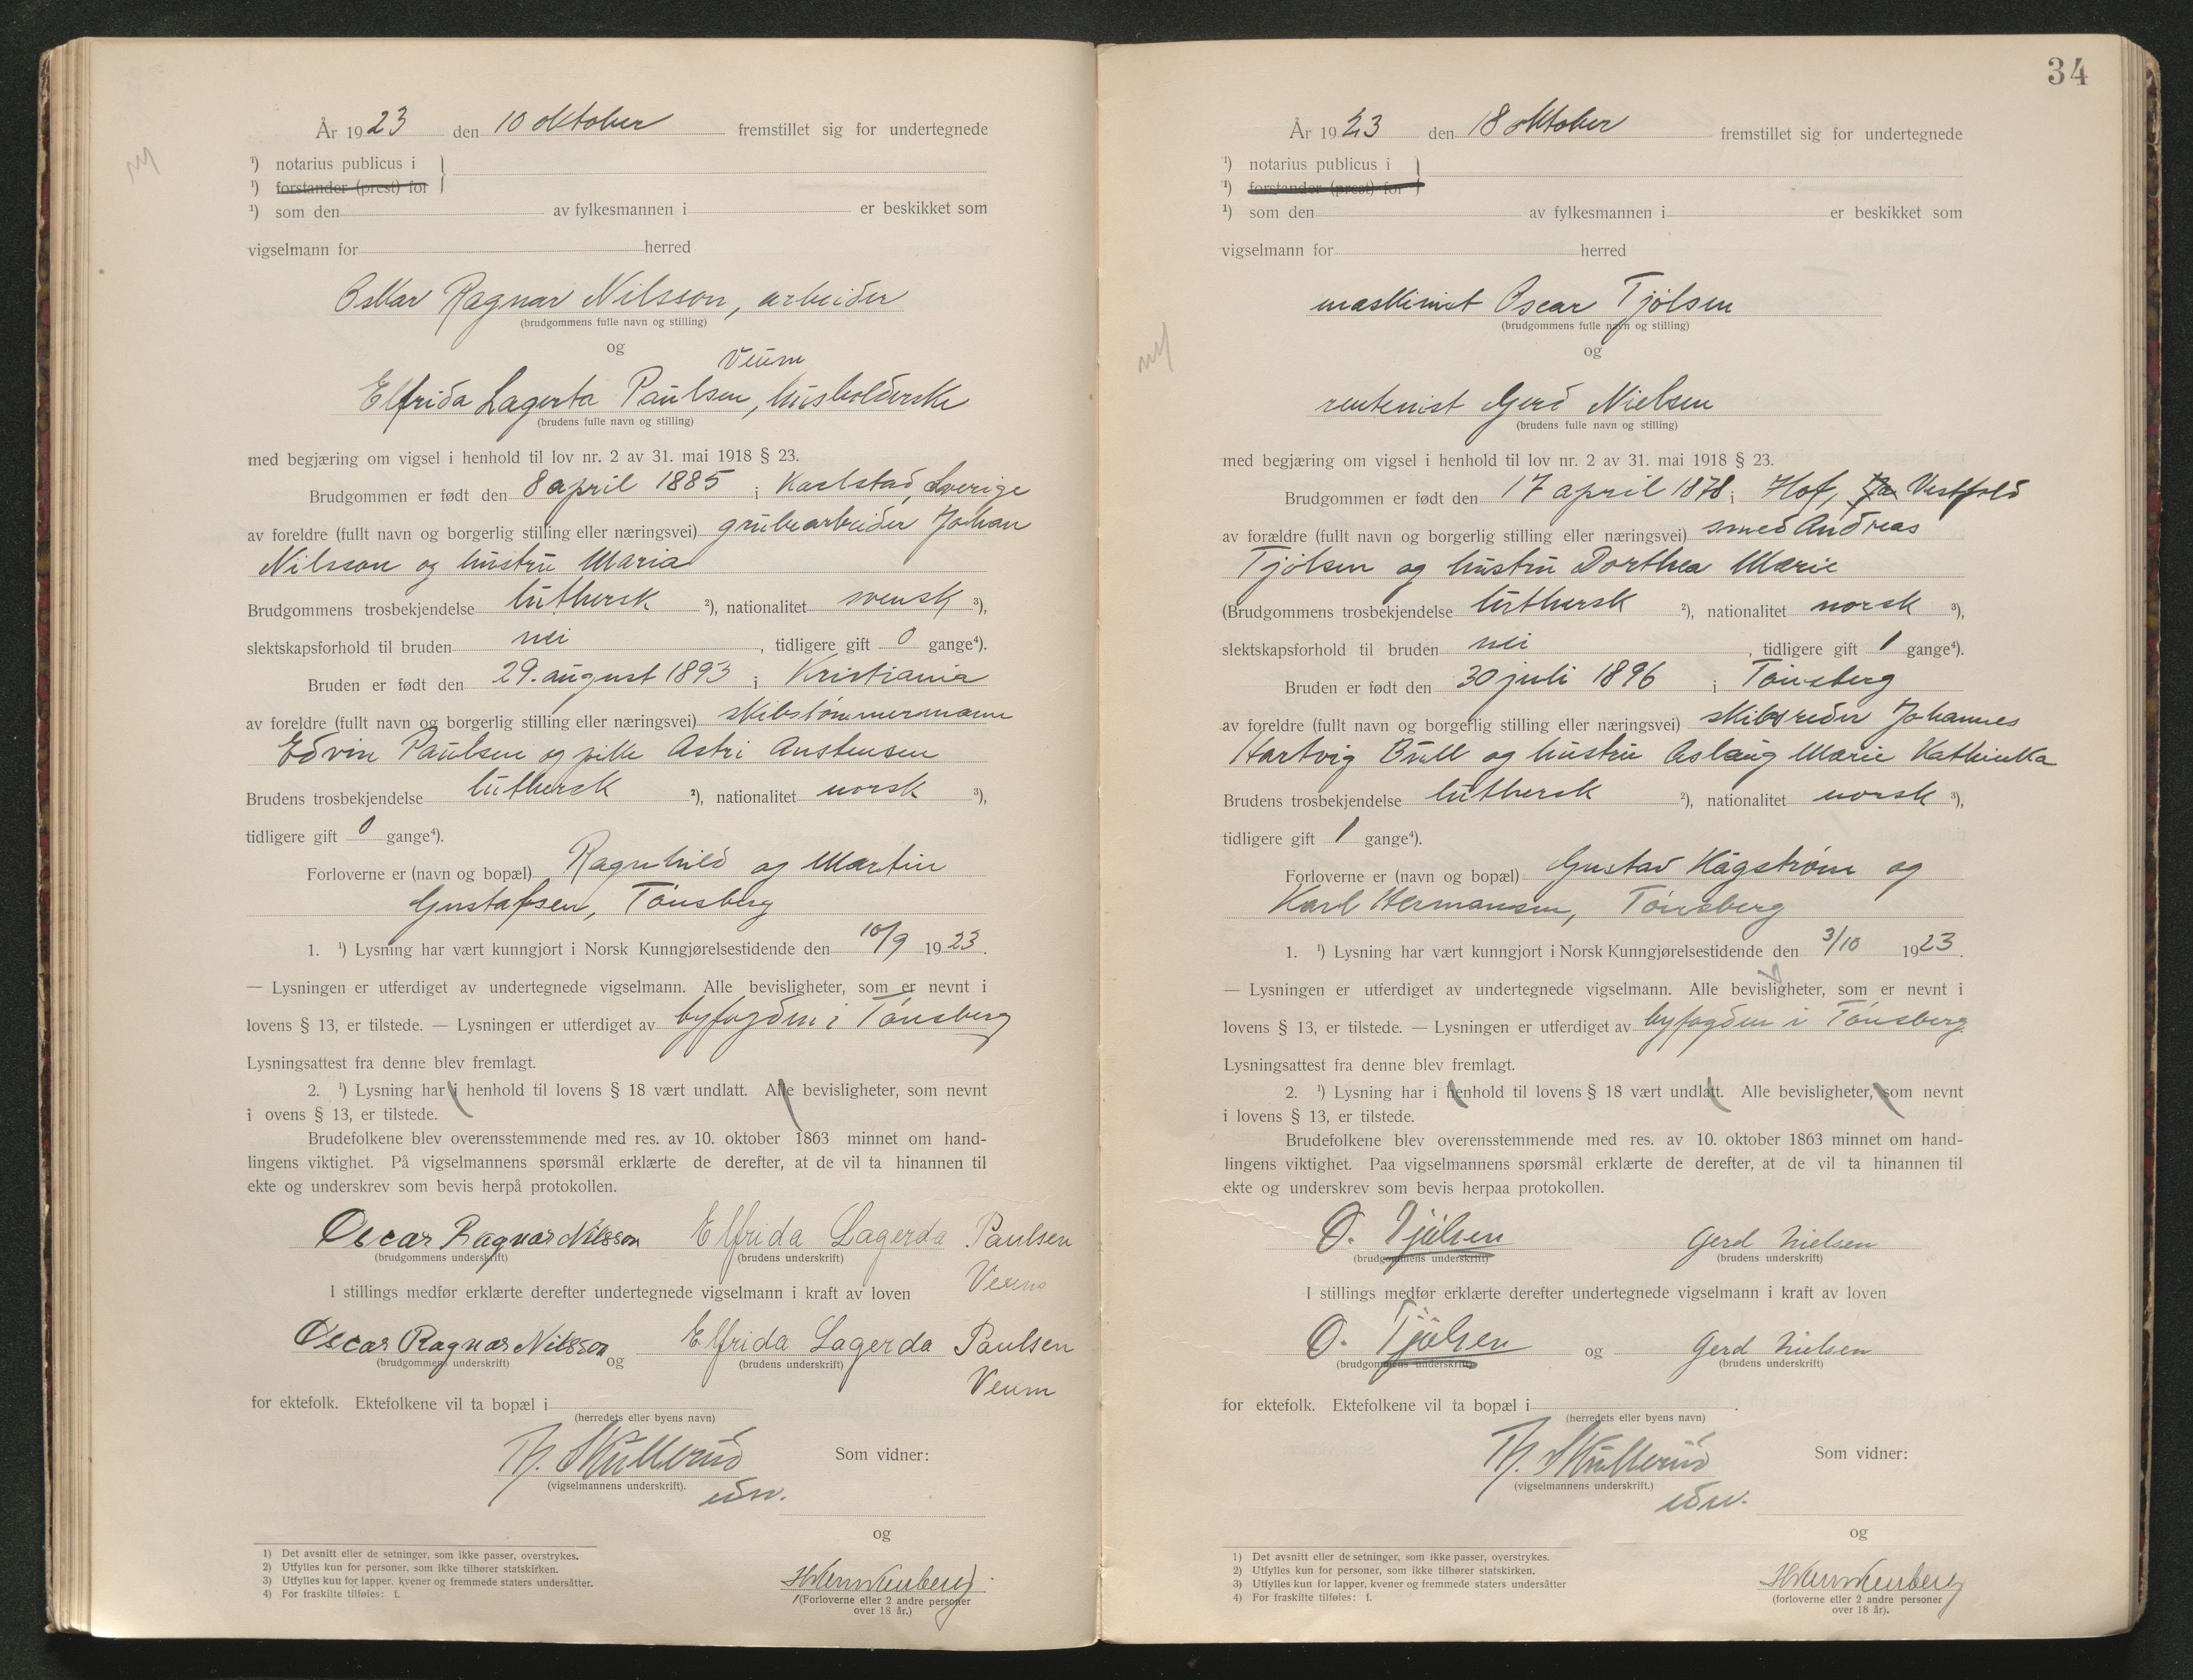 År 1923 den 10 oktober fremstillet sig for undertegnede
¹) notarius publicus i
¹) forstander (prest) for
¹) som den av fylkesmannen i er beskikket som
vigselmann for herred
Oskar Ragnar Nilsson, arbeider
(brudgommens fulle navn og stilling)
og
Veum
Elfrida Lagerta Paulsen, husholderske
(brudens fulle navn og stilling)
med begjæring om vigsel i henhold til lov nr. 2 av 31. mai 1918 § 23.
Brudgommen er født den 8 april 1885 i Karlstad, Sverige
av foreldre (fullt navn og borgerlig stilling eller næringsvei) grubearbeider Johan
Nilsson og hustru Maria
Brudgommens trosbekjendelse luthersk ²), nationalitet svensk ³),
slektskapsforhold til bruden nei, tidligere gift 0 gange⁴).
Bruden er født den 29. august 1893 i Kristiania
av foreldre (fullt navn og borgerlig stilling eller næringsvei) skibstømmermann
Edvin Paulsen og pike Astri Austensen
Brudens trosbekjendelse luthersk ²), nationalitet norsk ³),
tidligere gift 0 gange⁴).
Forloverne er (navn og bopæl) Ragnhild og Martin
Gustafsen, Tønsberg
1. ¹) Lysning har vært kunngjort i Norsk Kunngjørelsestidende den 10/9 1923.
— Lysningen er utferdiget av undertegnede vigselmann. Alle bevisligheter, som er nevnt i
lovens § 13, er tilstede. — Lysningen er utferdiget av byfogden i Tønsberg
Lysningsattest fra denne blev fremlagt.
2. ¹) Lysning har i henhold til lovens § 18 vært undlatt. Alle bevisligheter, som nevnt
i ovens § 13, er tilstede.
Brudefolkene blev overensstemmende med res. av 10. oktober 1863 minnet om hand-
lingens viktighet. På vigselmannens spørsmål erklærte de derefter, at de vil ta hinannen til
ekte og underskrev som bevis herpå protokollen.
Oscar Ragnar Nilsson Elfrida Lagerda Paulsen
(brudgommens underskrift) (brudens underskrift)
Veum
I stillings medfør erklærte derefter undertegnede vigselmann i kraft av loven
Oscar Ragnar Nilsson og Elfrida Lagerda Paulsen
(brudgommens underskrift) (brudens underskrift)
Veum
for ektefolk. Ektefolkene vil ta bopæl i
(herredets eller byens navn)
Th. Skullerud
Som vidner:
(vigselmannens underskrift).
edw.
og
1) Det avsnitt eller de setninger, som ikke passer, overstrykes.
2) Utfylles kun for personer, som ikke tilhører statskirken.
3) Utfylles kun for lapper, kvener og fremmede staters undersåtter.
4) For fraskilte tilføies: f.
(Forloverne eller 2 andre personer
over 18 år.)
34
År 1923 den 18 oktober fremstillet sig for undertegnede
¹) notarius publicus i
¹) forstander (prest) for
¹) som den av fylkesmannen i er beskikket som
vigselmann for herred
maskinist Oscar Tjølsen
(brudgommens fulle navn og stilling)
og
rentenist Gerd Nielsen
(brudens fulle navn og stilling)
med begjæring om vigsel i henhold til lov nr. 2 av 31. mai 1918 § 23.
Brudgommen er født den 17 april 1878 i Hof, Vestfold
av forældre (fullt navn og borgerlig stilling eller næringsvei) smed Andreas
Tjølsen og hustru Dorthea Marie
(Brudgommens trosbekjendelse luthersk ²), nationalitet norsk ³),
slektskapsforhold til bruden nei, tidligere gift 1 gange⁴).
Bruden er født den 30 juli 1896 i Tønsberg
av foreldre (fullt navn og borgerlig stilling eller næringsvei) skibsreder Johannes
Hartvig Bull og hustru Aslaug Marie Kathinka
Brudens trosbekjendelse luthersk ²), nationalitet norsk ³),
tidligere gift 1 gange⁴).
Forloverne er (navn og bopæl) Gustav Hägstrøm og
Karl Hermansen, Tønsberg
1. ¹) Lysning har vært kunngjort i Norsk Kunngjørelsestidende den 3/10 1923.
— Lysningen er utferdiget av undertegnede vigselmann. Alle bevisligheter, som er nevnt i
lovens § 13, er tilstede. — Lysningen er utferdiget av byfogden i Tønsberg.
Lysningsattest fra denne blev fremlagt.
2. ¹) Lysning har i henhold til lovens § 18 vært undlatt. Alle bevisligheter, som nevnt
i lovens § 13, er tilstede.
Brudefolkene blev overensstemmende med res. av 10. oktober 1863 minnet om hand-
lingens viktighet. Paa vigselmannens spørsmål erklærte de derefter, at de vil ta hinannen til
ekte og underskrev som bevis herpaa protokollen.
O. Tjölsen Gerd Nielsen
(brudgommens underskrift) (brudens underskrift)
I stillings medfør erklærte derefter undertegnede vigselmann i kraft av loven
O. Tjölsen og Gerd Nielsen
(brudgommens underskrift) (brudens underskrift)
for ektefolk. Ektefolkene vil ta bopæl i .
(herredets eller byens navn)
Th. Skullerud
Som vidner:
(vigselmannens underskrift.)
edw.
og
1) Det avsnitt eller de setninger, som ikke passer, overstrykes.
2) Utfylles kun for personer, som ikke tilhører statskirken.
3) Utfylles kun for lapper, kvener og fremmede staters undersåtter
4) For fraskilte tilføies: f.
(forloverne eller 2 andre personer
over 18 år).